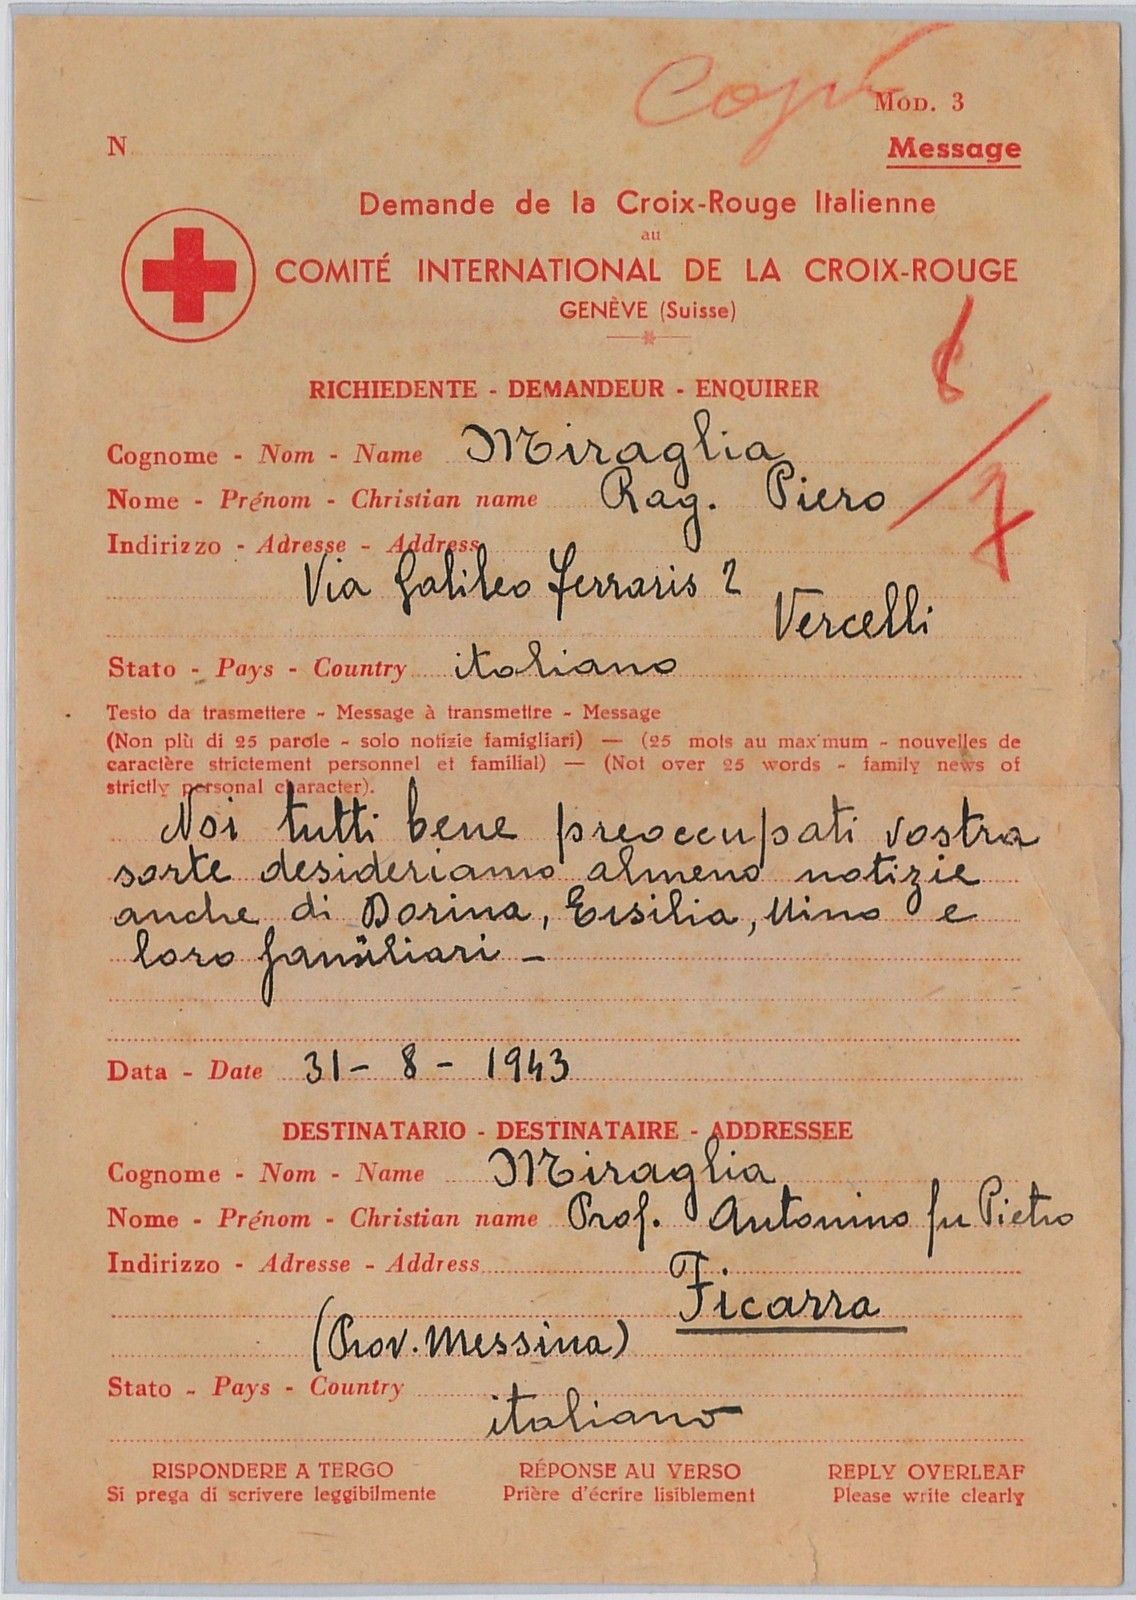 Copi
MOD. 3
N
Message
Demande de la Croix-Rouge Italienne
au
COMITÉ INTERNATIONAL DE LA CROIX-ROUGE
GENÈVE (Suisse)
RICHIEDENTE - DEMANDEUR - ENQUIRER
Cognome - Nom - Name Miraglia
Nome - Prénom - Christian name Rag. Piero
Indirizzo - Adresse - Address
Via Galileo Ferraris 2
Vercelli
Stato - Pays - Country italiano
Testo da trasmettere - Message à transmettre - Message
(Non più di 25 parole - solo notizie famigliari) — (25 mots au maximum - nouvelles de
caractère strictement personnel et familial) — (Not over 25 words - family news of
strictly personal character).
Noi tutti bene preoccupati vostra
sorte desideriamo almeno notizie
anche di Dorina, Ersilia, Nino e
loro familiari -
Data - Date 31 - 8 - 1943
DESTINATARIO - DESTINATAIRE - ADDRESSEE
Cognome - Nom - Name Miraglia
Nome - Prénom - Christian name Prof. Antonino fu Pietro
Indirizzo - Adresse - Address
Ficarra
(Prov. Messina)
Stato - Pays - Country
italiano
RISPONDERE A TERGO RÉPONSE AU VERSO REPLY OVERLEAF
Si prega di scrivere leggibilmente Prière d'écrire lisiblement Please write clearly